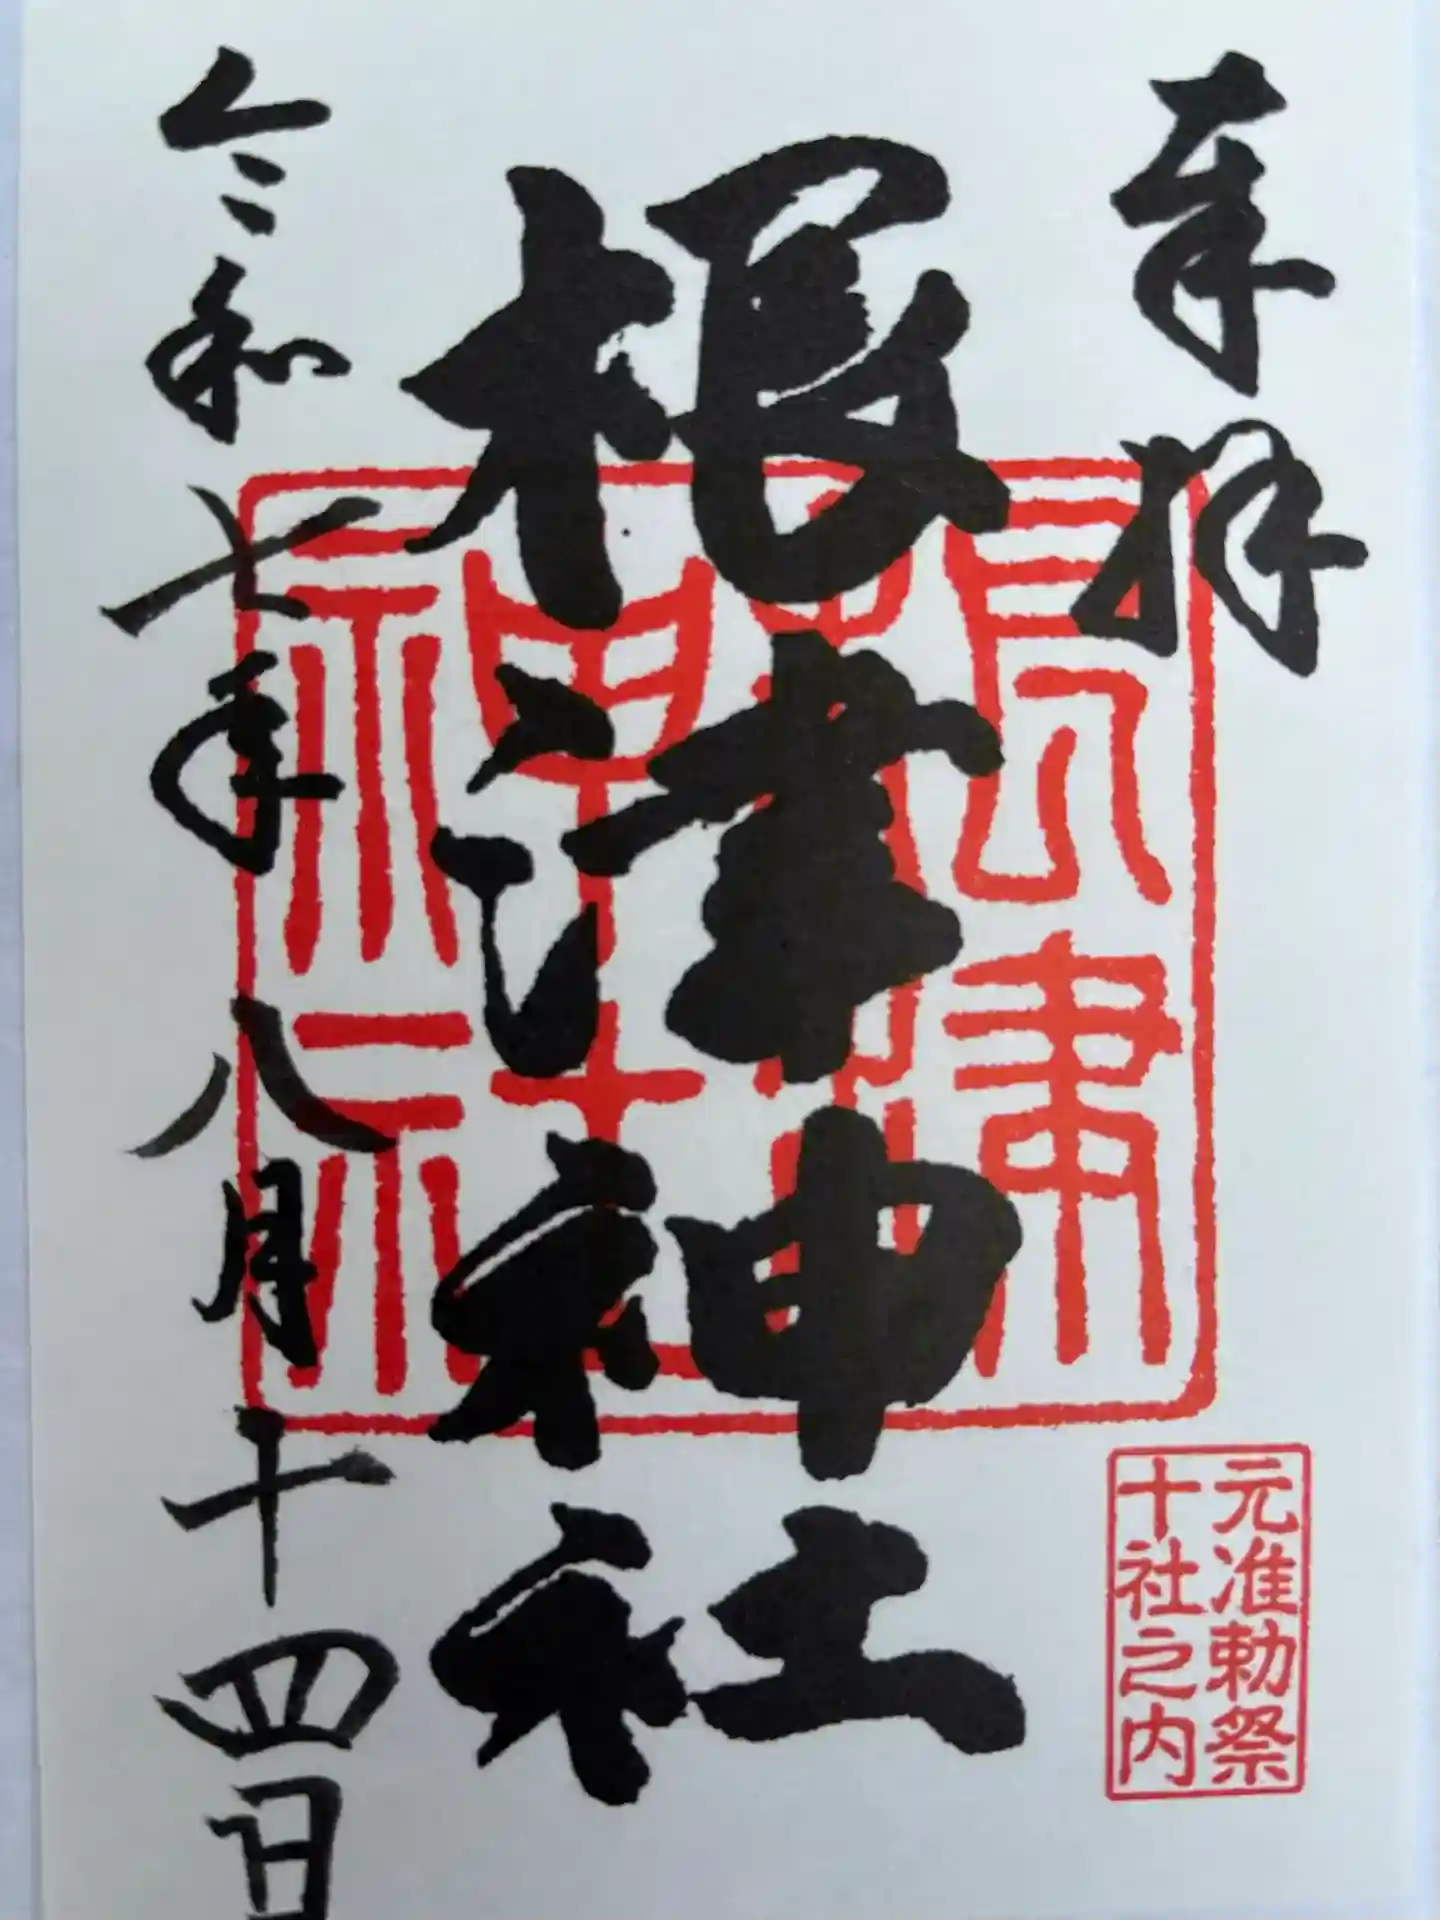 奉拝
根津神社
令和七年八月十四日
根津
神社
元准勅祭
十社之内